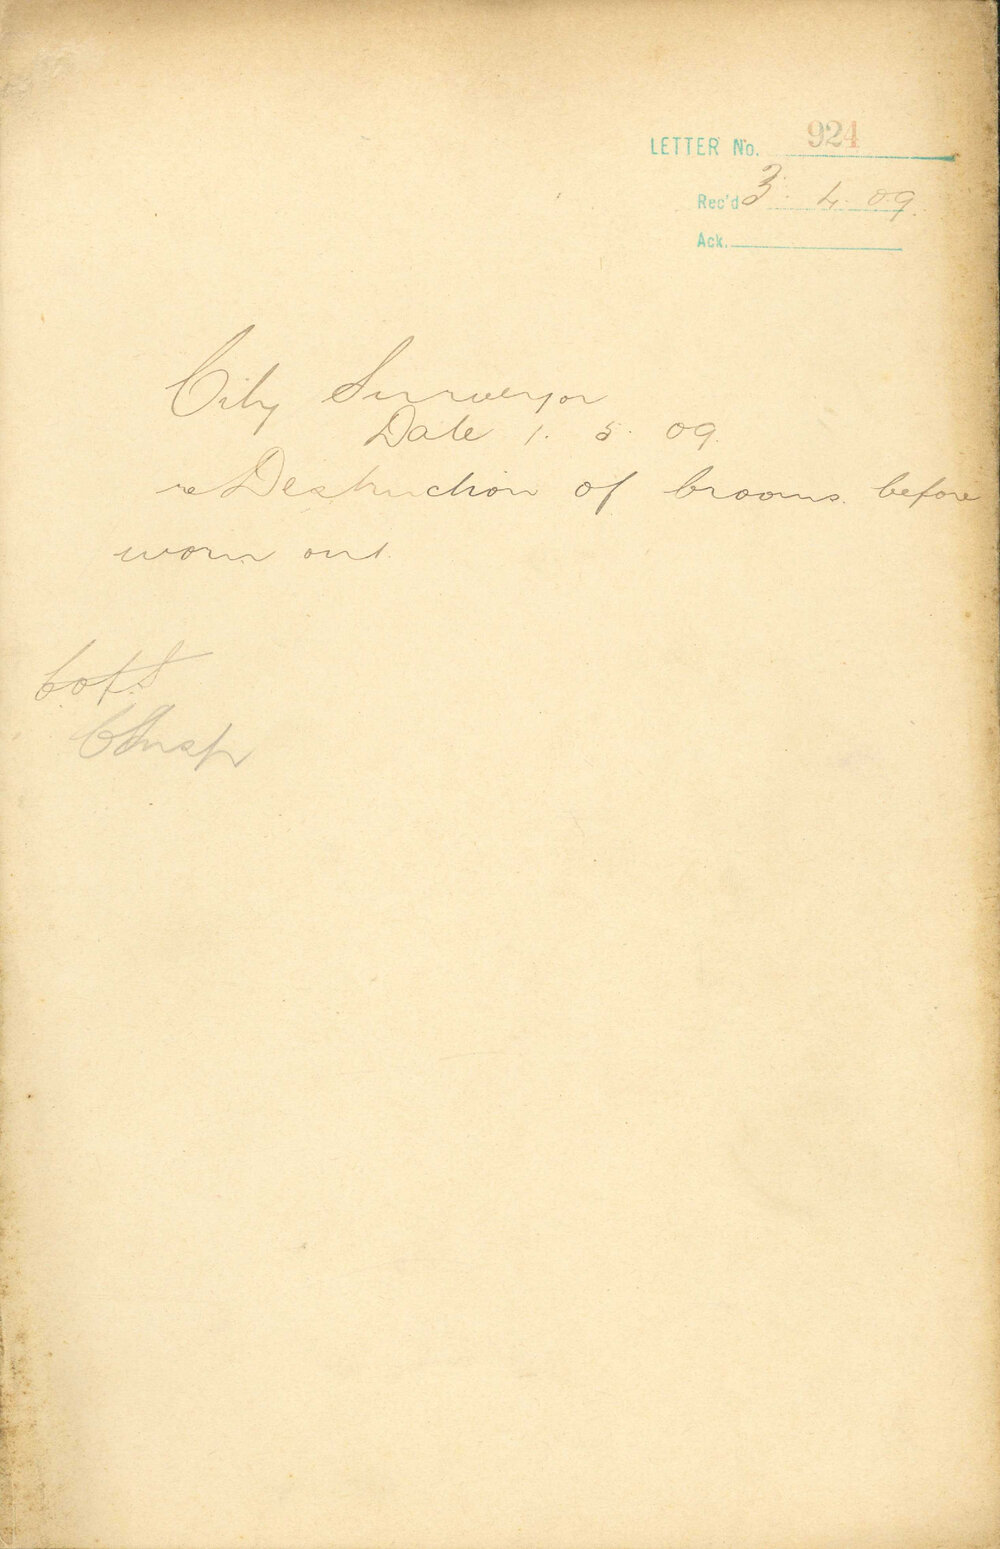 LETTER No. 924
Rec'd 3. 4. 09.
Ack.
City Surveyor
Date 1. 5. 09.
re Destruction of brooms before
worn out.
C Insp